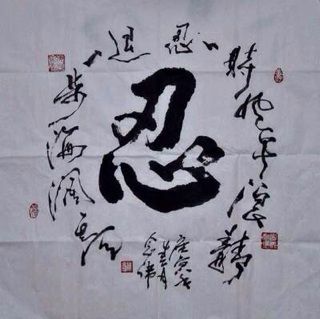 忍
忍一
時風平浪靜
退一
步海闊天空
庚寅